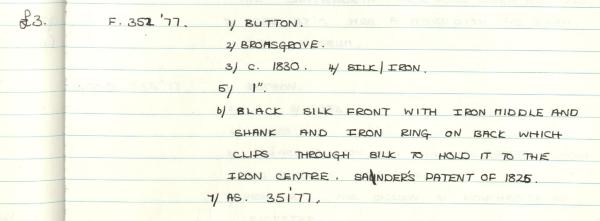 £3. F. 352 '77. 1/ BUTTON.
2/ BROMSGROVE.
3/ C. 1830. 4/ SILK/IRON.
5/ 1".
6/ BLACK SILK FRONT WITH IRON MIDDLE AND
SHANK AND IRON RING ON BACK WHICH
CLIPS THROUGH SILK TO HOLD IT TO THE
IRON CENTRE. SAUNDER'S PATENT OF 1825.
7/ AS. 351'77.